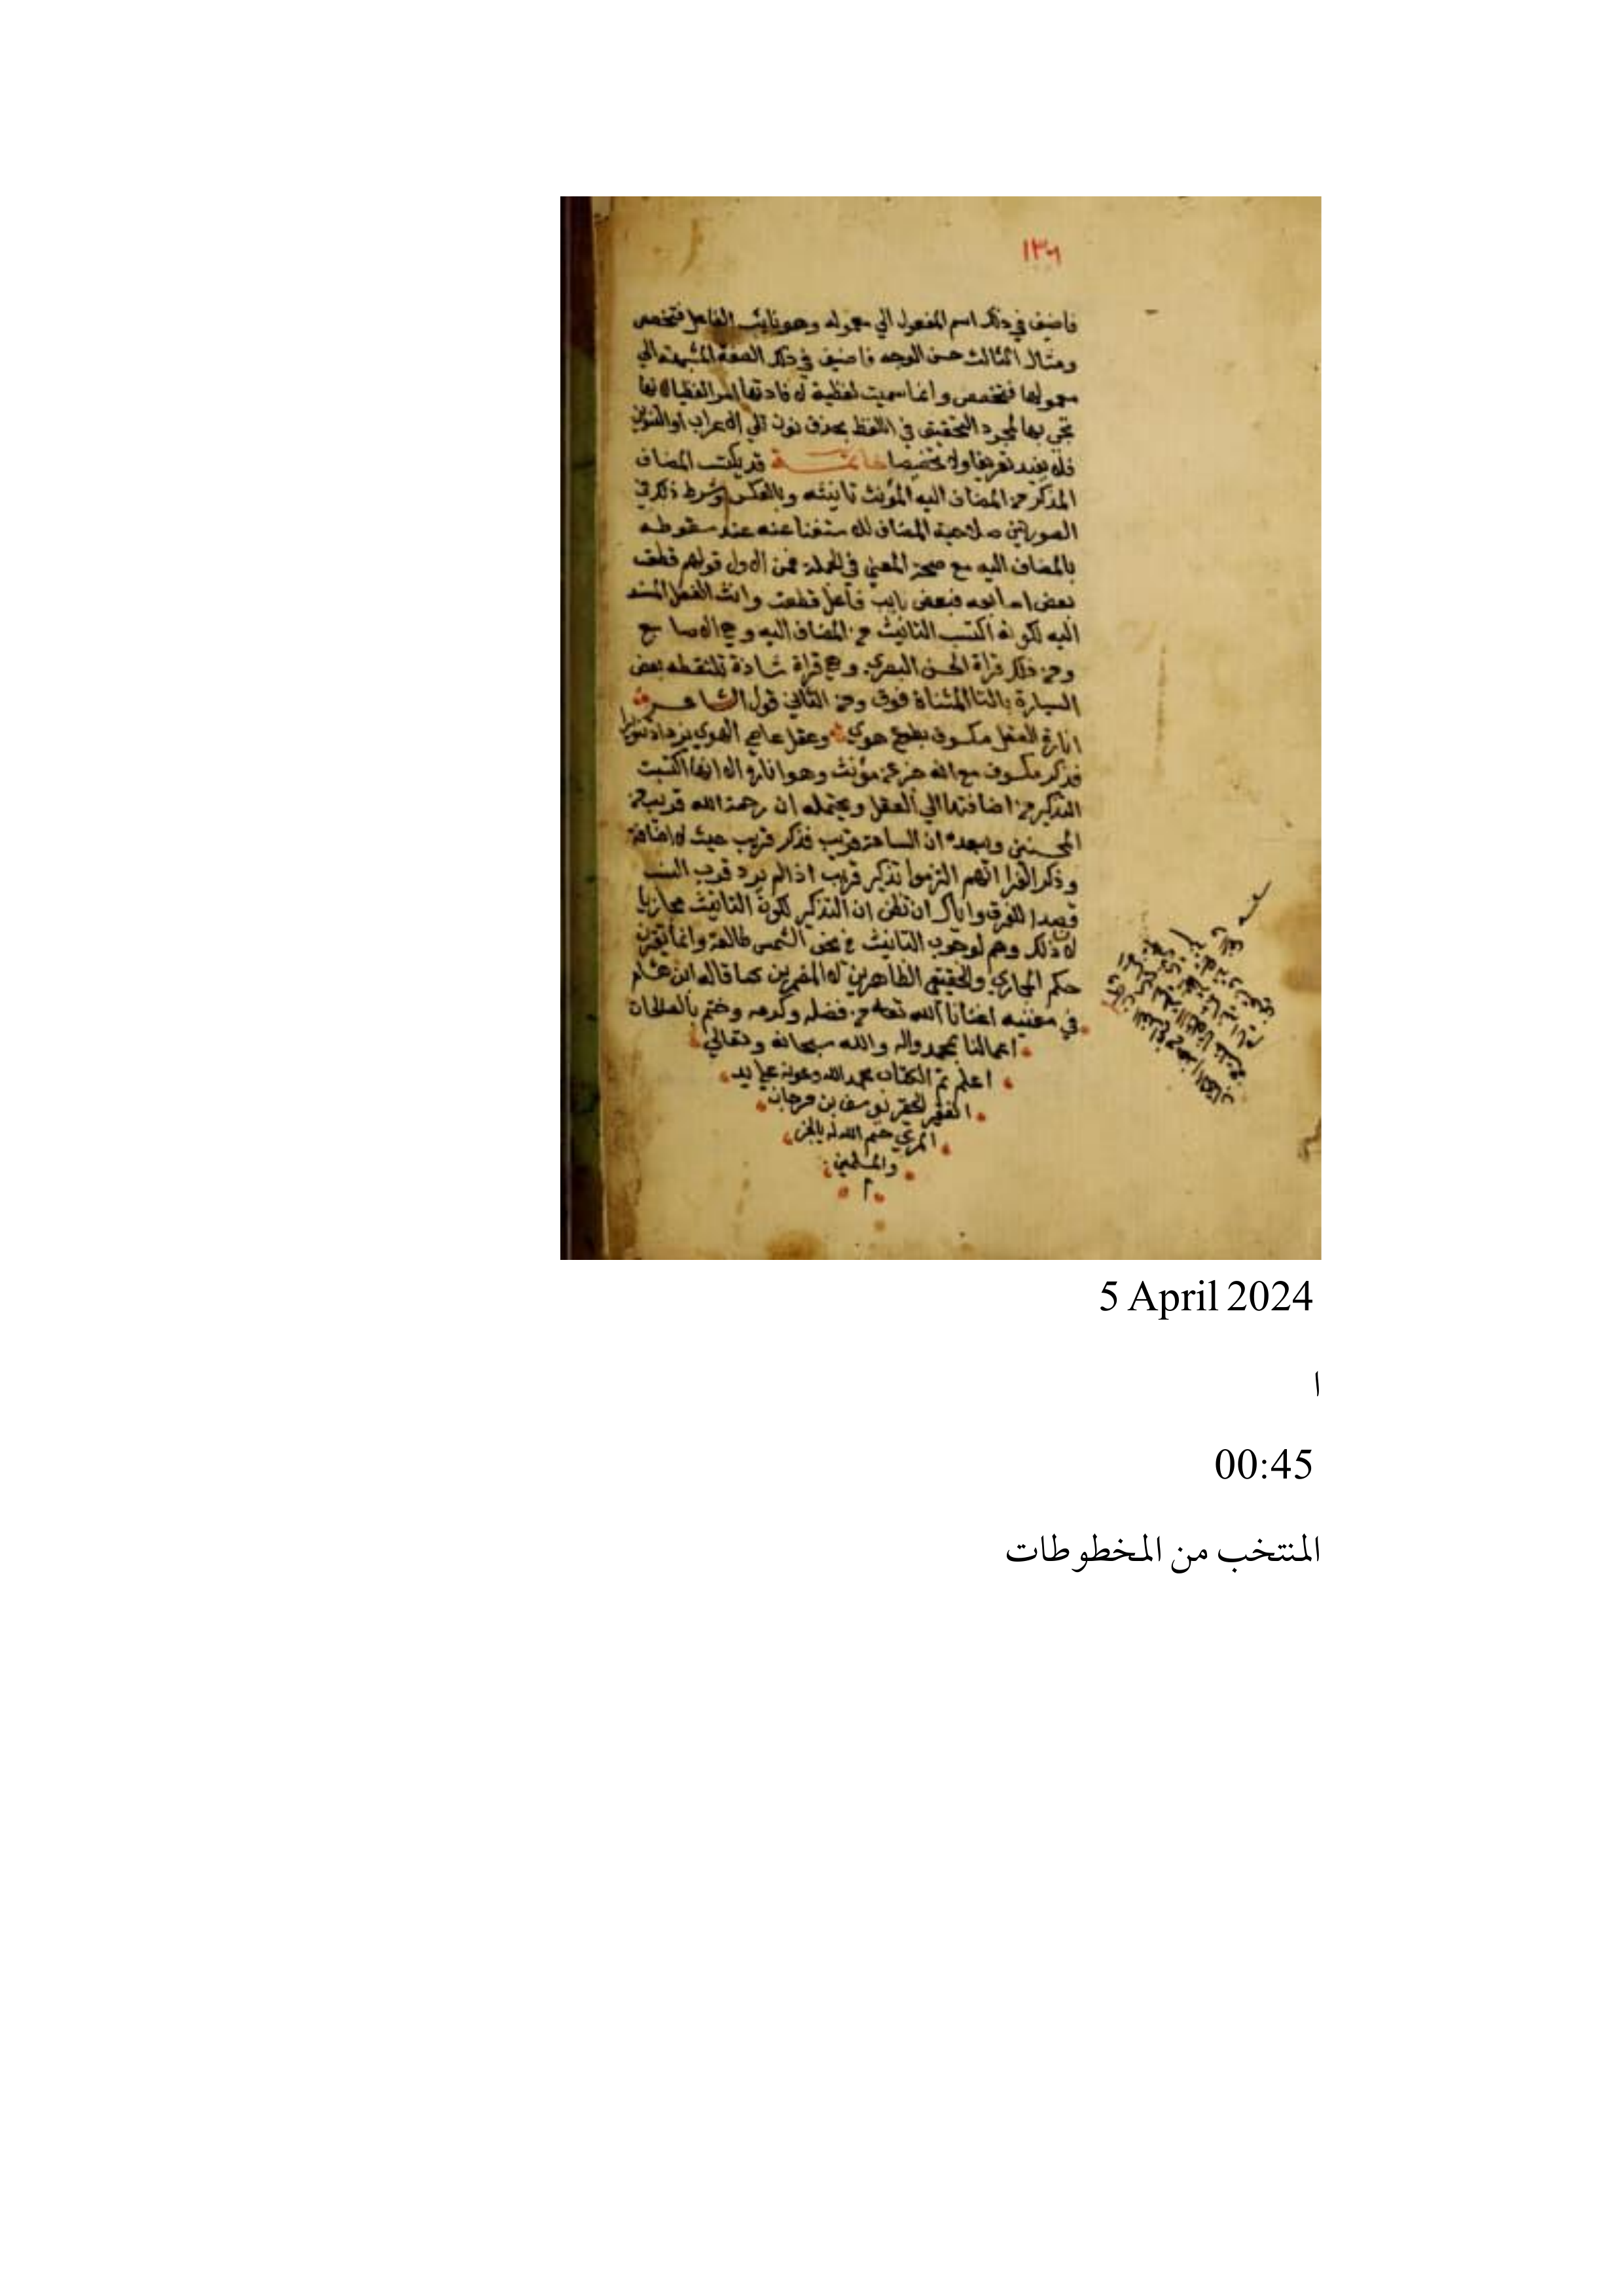 ١٣٦
فاضيف في ذلك اسم المفعول الي معموله وهو نايب الفاعل فتخصص
ومثال الثالث حسن الوجه فاضيف في ذلك الصفة المشبهة الي
معمولها فتخصص وانما سميت لفظية لافادتها امرا لفظيا لانها
بها لمجرد التخفيف في اللفظ بحذف نون تلي الاعراب او التنوين
فلا يفيد تعريفا ولا تخصيصا خاتمـــة قد يكتسب المضاف
المذكر من المضاف اليه المؤنث تانيثه وبالعكس وشرط ذلك في
الصورتين صلاحية المضاف للاستغنا عنه عند سقوطه
بالمضاف اليه مع صحة المعني في الجملة فمن الاول قولهم قطعت
بعض اصابعه فبعض نايب فاعل قطعت وانث الفعل المسند
اليه لكونه اكتسب التانيث من المضاف اليه وهي الاصابع
ومن ذلك قراة الحسن البصري وهي قراة شاذة تلتقطه بعض
السيارة بالتا المثناة فوق ومن الثاني قول الشاعـــر
انارة العقل مكسوف بطوع هوي وعقل عاصي الهوي يزداد تنويرا
فذكر مكسوف مع انه خبر عن مؤنث وهو انارة الا انها اكتسبت
التذكير من اضافتها الي العقل ويحتمله ان رحمة الله قريب من
المحسنين ويبعده ان الساعة قريب فذكر قريب حيث لا اضافة
وذكر الفرا انهم التزموا تذكير قريب اذا لم يرد قرب النسب
قصدا للفرق واياك ان تظن ان التذكير لكون التانيث مجازيا
لان ذلك وهم لوجوب التانيث في نحو الشمس طالعة وانما يفترق
حكم المجازي والحقيقي الظاهرين لا المضمرين كما قاله ابن هشام
في مغنيه اغنانا الله تعالى من فضله وكرمه وختم بالصالحات
اعمالنا بمحمد واله والله سبحانه وتعالي
اعلم تم الكتاب بحمد الله وعونه علي يد
الفقير الحقير يوسف بن مرجان
المرعي ختم الله له بالخير
والمسلمين
م
5 April 2024
ا
00:45
المنتخب من المخطوطات